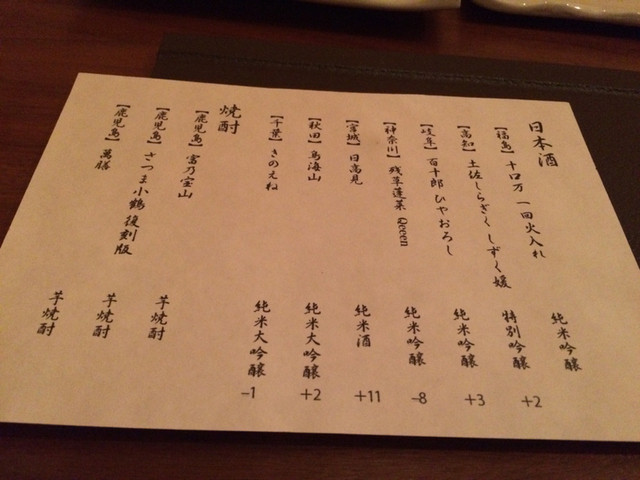 日本酒
【福島】 十口万 一回火入れ 純米吟醸
【高知】 土佐しらぎく しずく媛 特別吟醸 +2
【岐阜】 百十郎 ひやおろし 純米吟醸 +3
【神奈川】 残草蓬莱 Qeeen 純米吟醸 -8
【宮城】 日高見 純米酒 +11
【秋田】 鳥海山 純米大吟醸 +2
【千葉】 きのえね 純米大吟醸 -1
焼酎
【鹿児島】 富乃宝山 芋焼酎
【鹿児島】 さつま小鶴 復刻版 芋焼酎
【鹿児島】 萬膳 芋焼酎